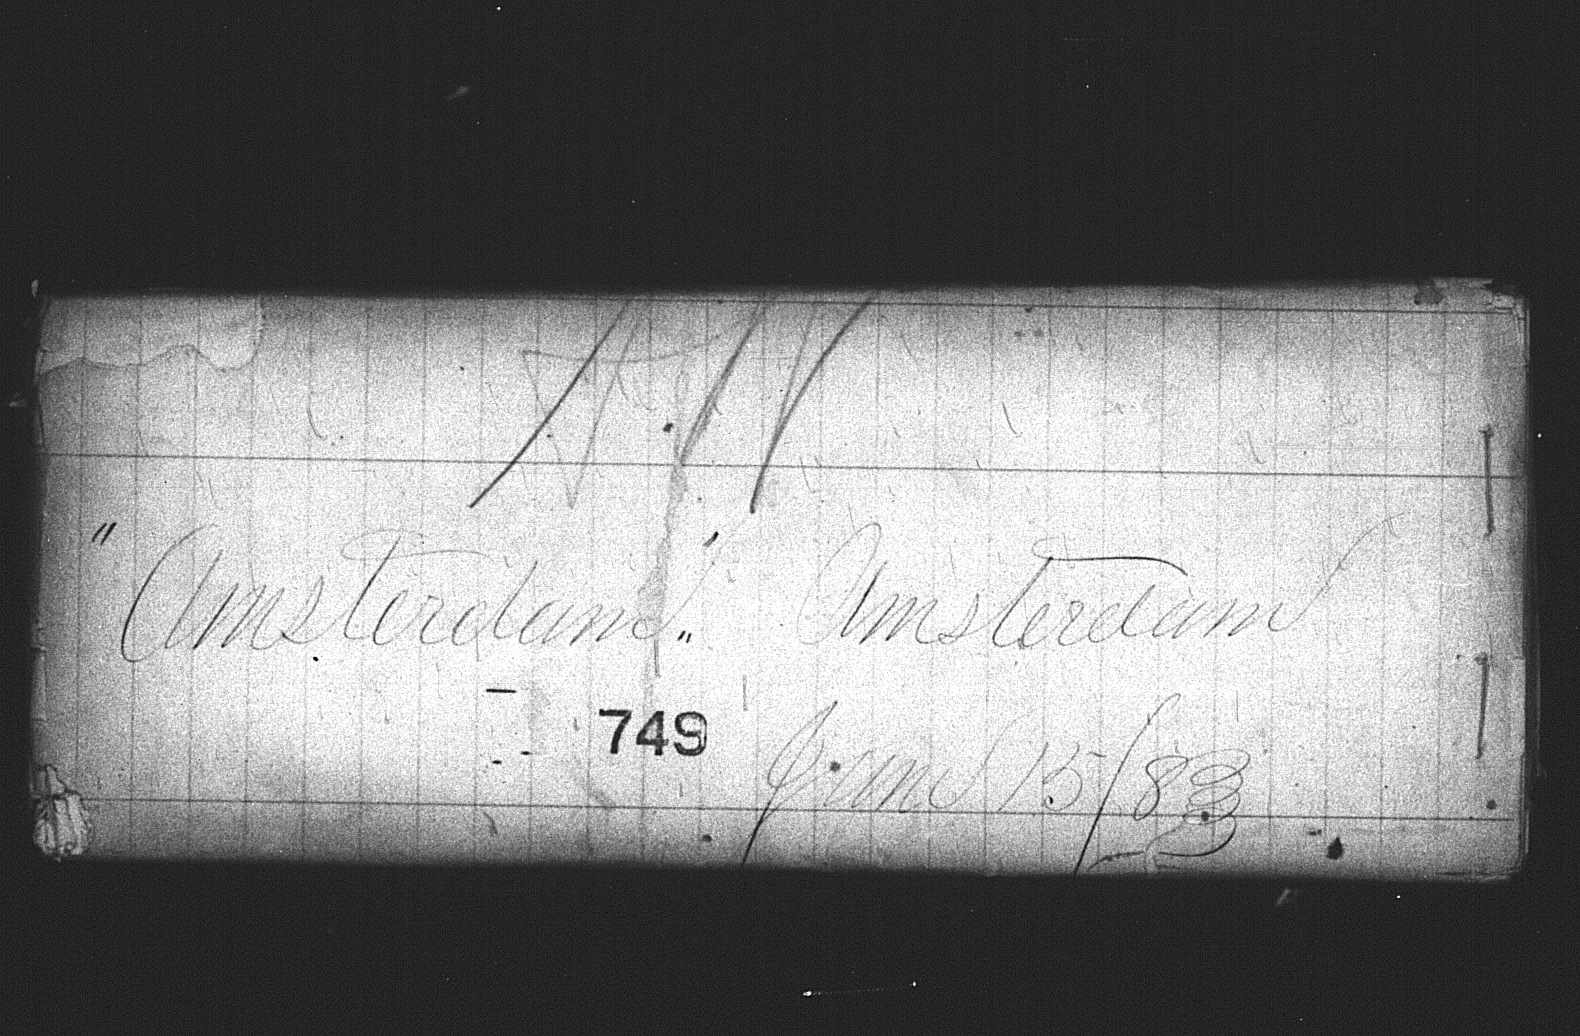 "Amsterdam" Amsterdam
749
June 15/83